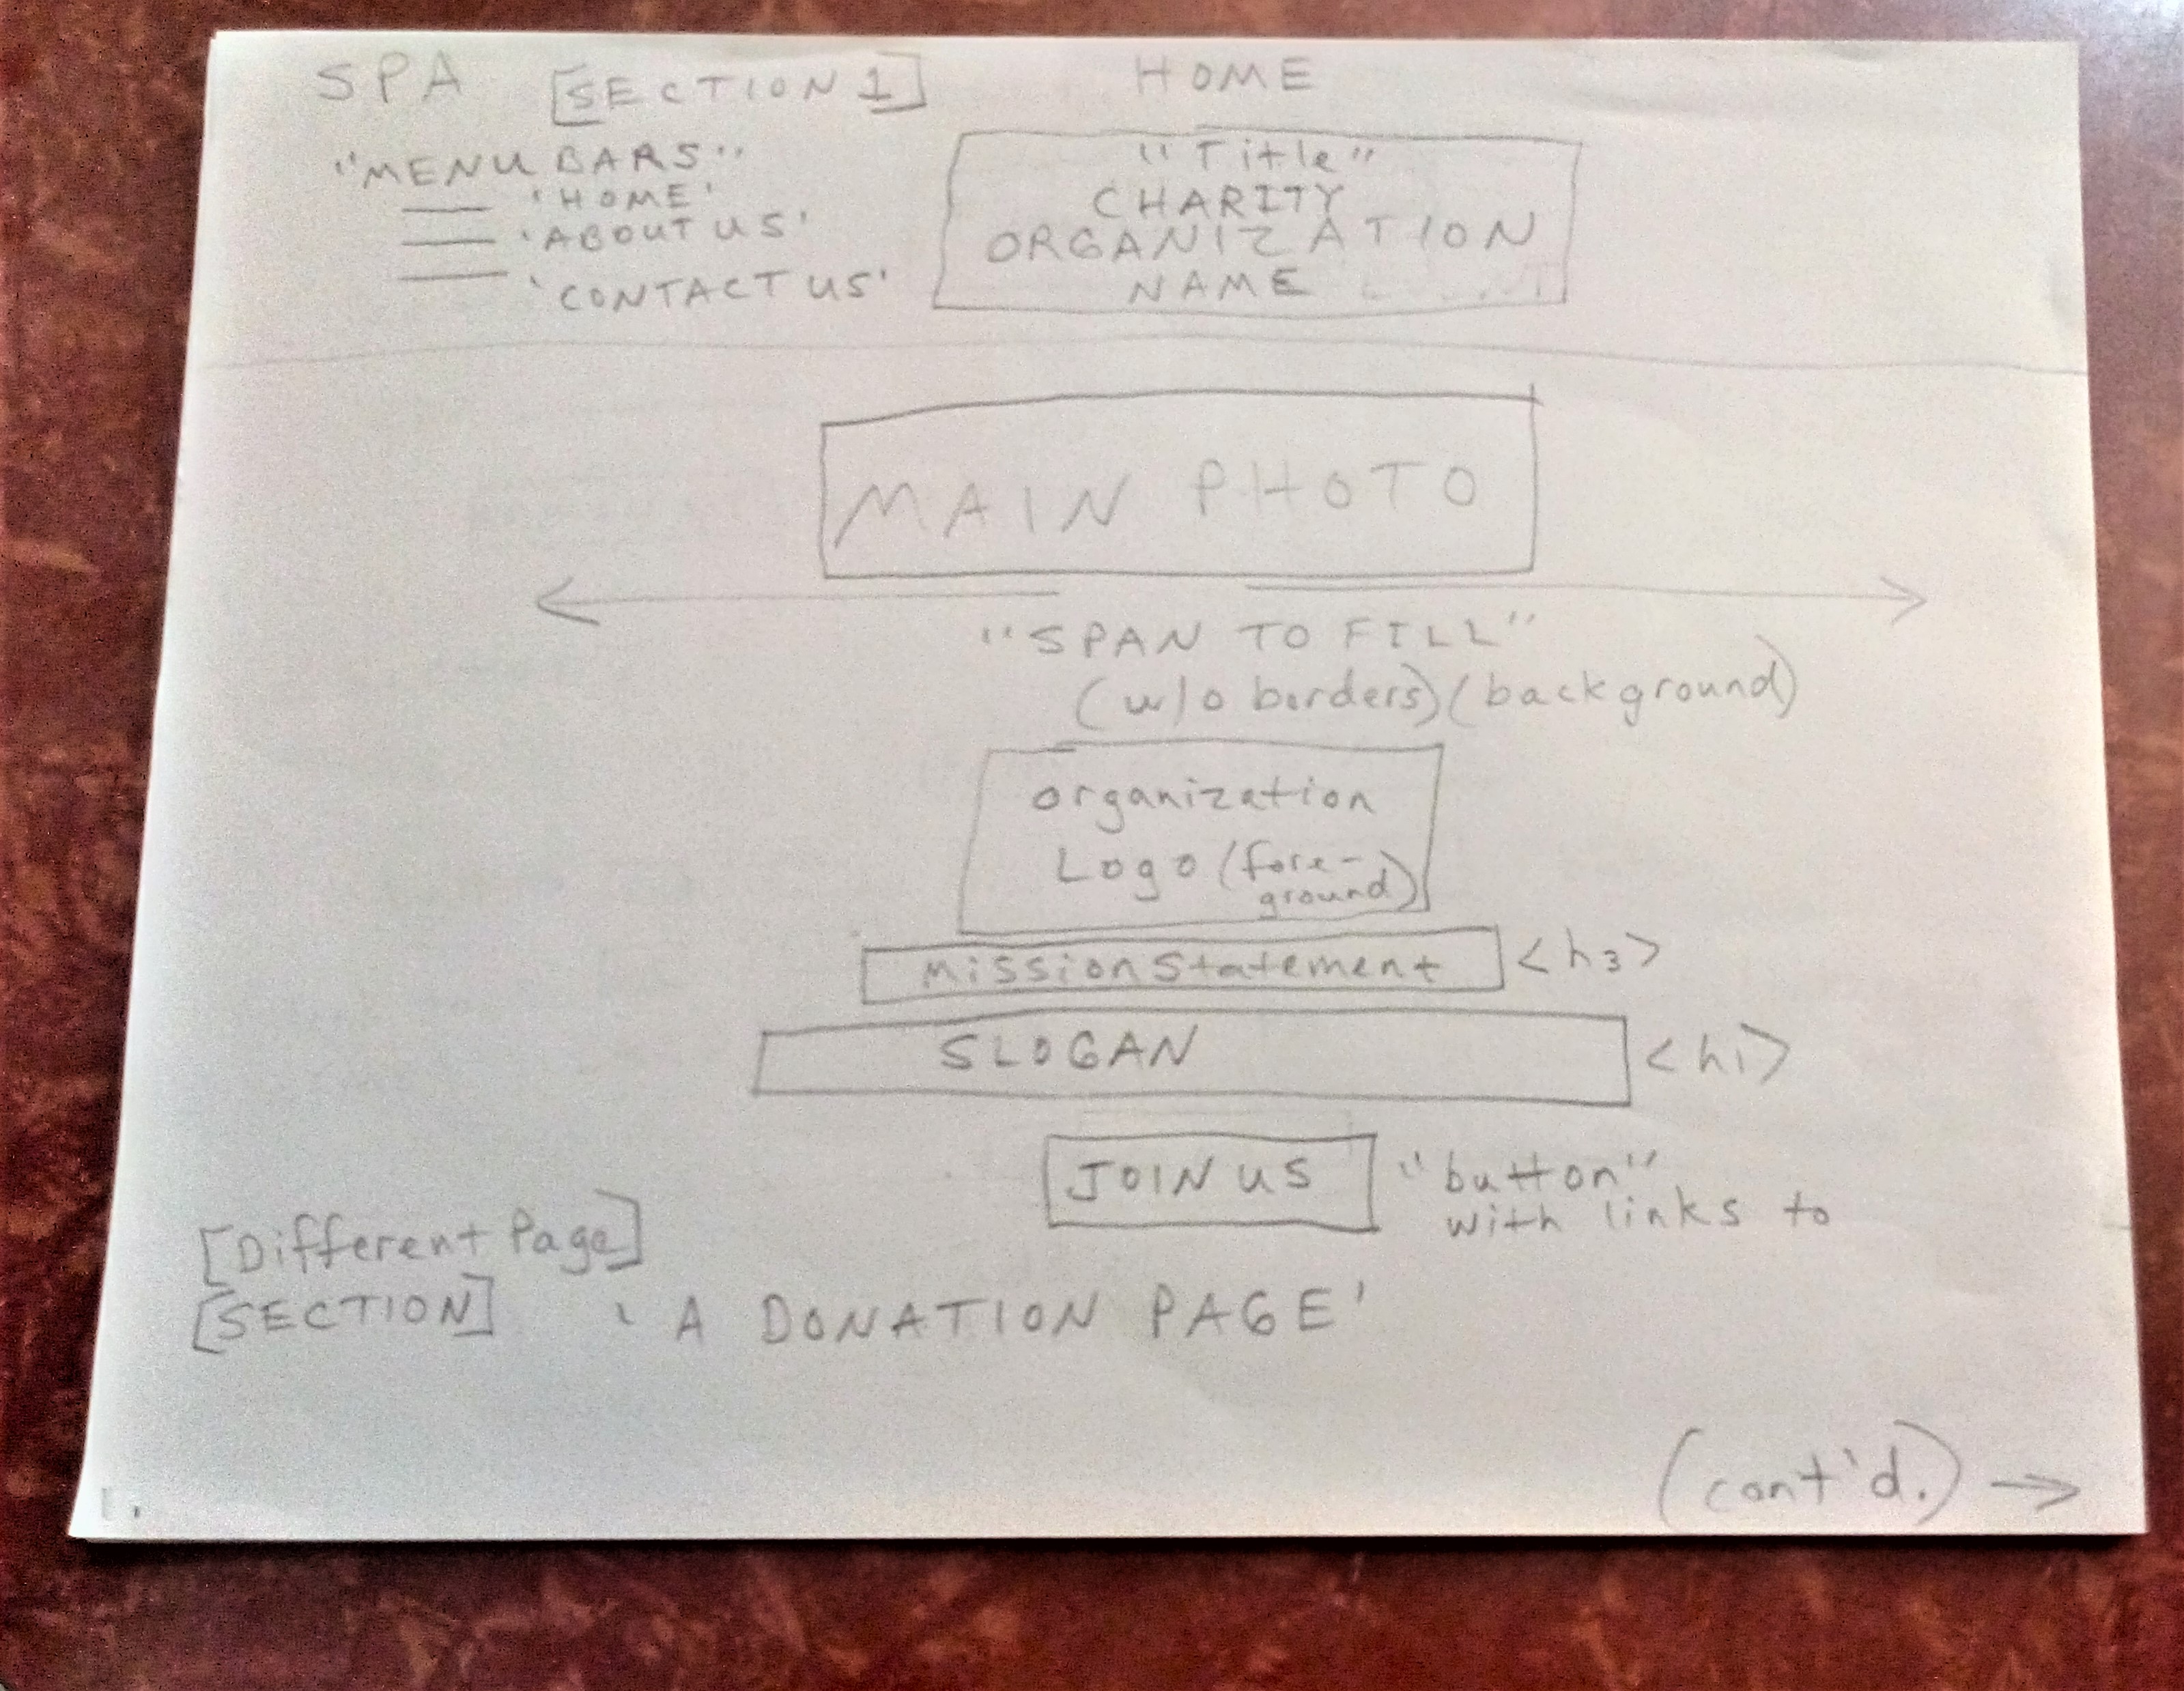 SPA [SECTION 1] HOME
"MENU BARS"
'HOME'
'ABOUT US'
'CONTACT US'
"Title"
CHARITY
ORGANIZATION
NAME
MAIN PHOTO
"SPAN TO FILL"
(w/o borders) (background)
organization
Logo (fore-
ground)
Mission Statement <h3>
SLOGAN <h1>
JOIN US "button"
with links to
[Different Page]
[SECTION] 'A DONATION PAGE'
(cont'd.) →